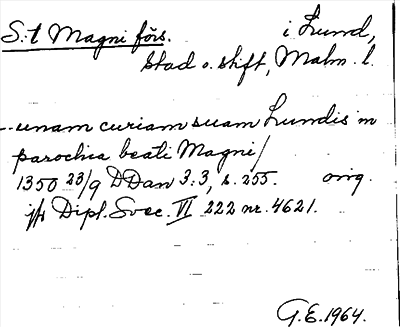 S:t Magni förs. i Lund,
Stad o. skift, Malm. l.
--unam curiam suam Lundis in
parochia beati Magni/
1350 23/9 DDan 3:3, s. 255. orig.
jfr Dipl. Svec. VI 222 nr. 4621.
G.E. 1964.